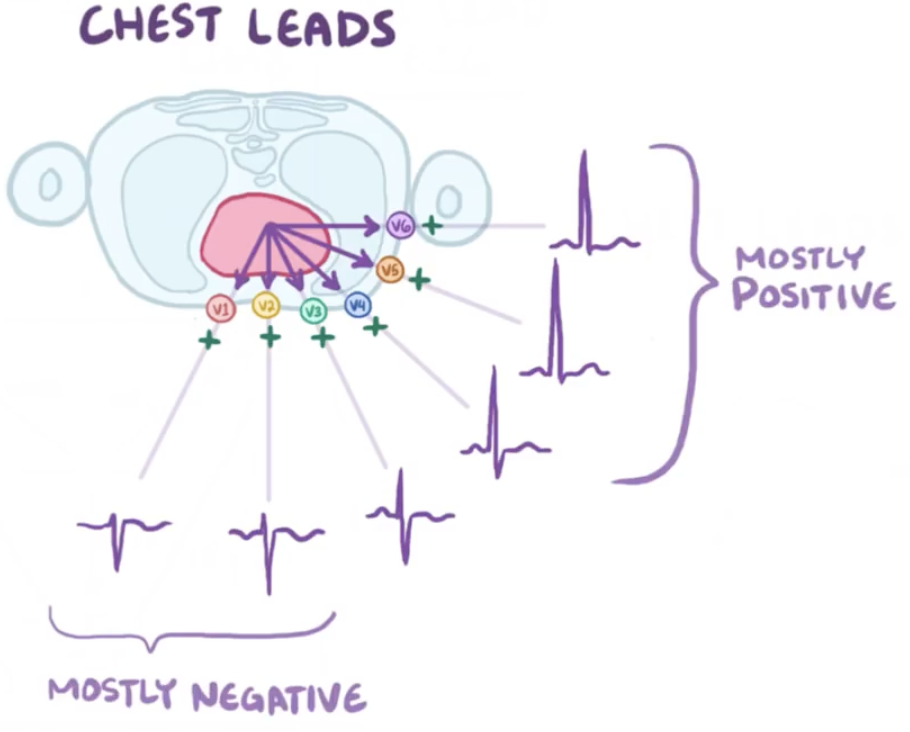 CHEST LEADS
V6 +
V5 +
V1 V2 V3 V4
+ + + +
MOSTLY
POSITIVE
MOSTLY NEGATIVE